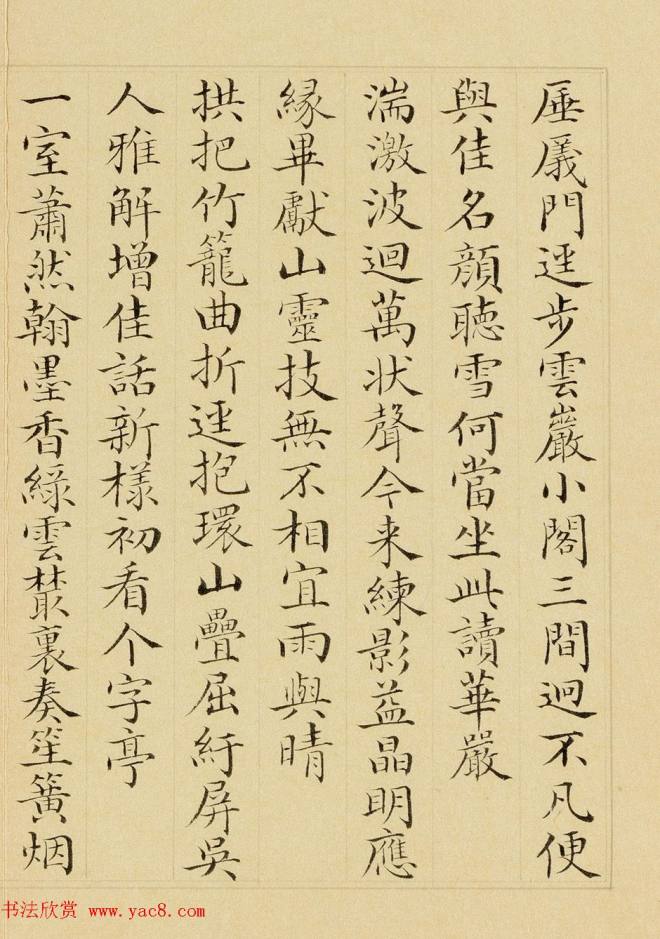 厜㕒門逕步雲巖小閣三間迥不凡便
與佳名顔聴雪何當坐此讀華嚴
湍激波迴萬状聲今来練影益晶明應
緣畢獻山靈技無不相宜雨與晴
拱把竹籠曲折逕抱環山疊屈紆屏吳
人雅解增佳話新樣初看个字亭
一室蕭然翰墨香綠雲藂裏奏笙簧烟
书法欣赏 www.yac8.com